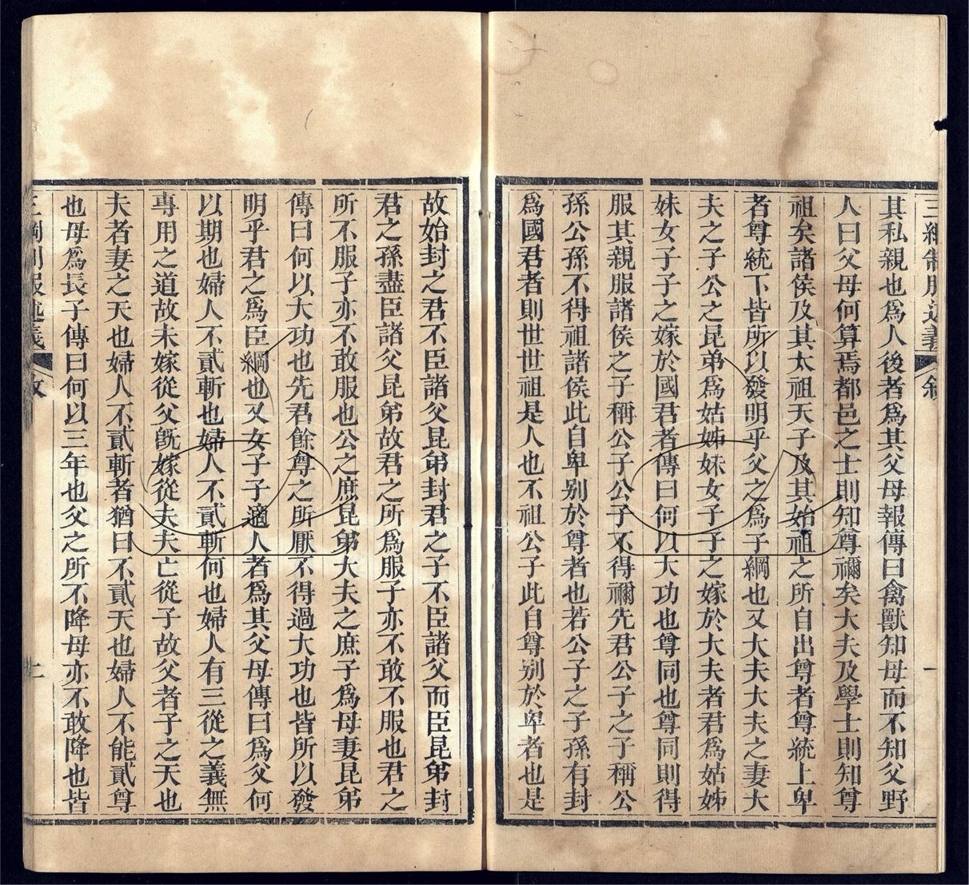 三綱制服述義 敘 一
其私親也爲人後者爲其父母報傳曰禽獸知母而不知父野
人曰父母何算焉都邑之士則知尊禰矣大夫及學士則知尊
祖矣諸侯及其太祖天子及其始祖之所自出尊者尊統上卑
者尊統下皆所以發明乎父之爲子綱也又大夫大夫之妻大
夫之子公之昆弟爲姑姊妹女子子之嫁於大夫者君爲姑姊
妹女子子之嫁於國君者傳曰何以大功也尊同也尊同則得
服其親服諸侯之子稱公子公子不得禰先君公子之子稱公
孫公孫不得祖諸侯此自卑别於尊者也若公子之子孫有封
爲國君者則世世祖是人也不祖公子此自尊别於卑者也是
故始封之君不臣諸父昆弟封君之子不臣諸父而臣昆弟封
君之孫盡臣諸父昆弟故君之所爲服子亦不敢不服也君之
所不服子亦不敢服也公之庶昆弟大夫之庶子爲母妻昆弟
傳曰何以大功也先君餘尊之所厭不得過大功也皆所以發
明乎君之爲臣綱也又女子子適人者爲其父母傳曰爲父何
以期也婦人不貳斬也婦人不貳斬何也婦人有三從之義無
專用之道故未嫁從父旣嫁從夫夫亡從子故父者子之天也
夫者妻之天也婦人不貳斬者猶曰不貳天也婦人不能貳尊
也母爲長子傳曰何以三年也父之所不降母亦不敢降也皆
三綱制服述義